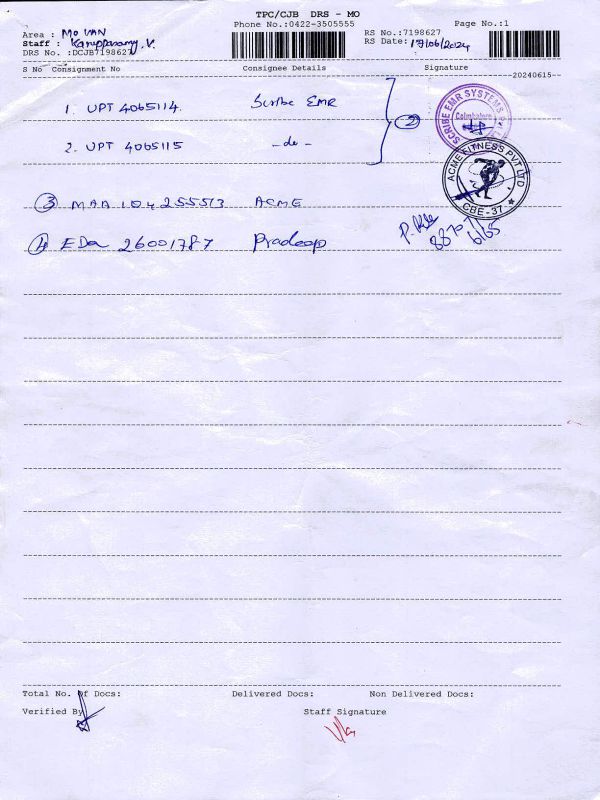 TPC/CJB DRS - MO
Phone No.:0422-3505555 Page No.:1
Area : MO VAN RS No.:7198627
Staff : Karuppasamy.V. RS Date: 17/06/2024
DRS No. :DCJB7198627
S No Consignment No Consignee Details Signature
20240615
1. UPT 4065114 Scribe EMR
2. UPT 4065115 - do - 2
SCRIBE EMR SYSTEMS
Coimbatore
3 MAA 104255513 ACME
ACME FITNESS PVT LTD
CBE - 37
4 EDa 26001787 Pradeep
8870
6165
Total No. Of Docs: Delivered Docs: Non Delivered Docs:
Verified By Staff Signature